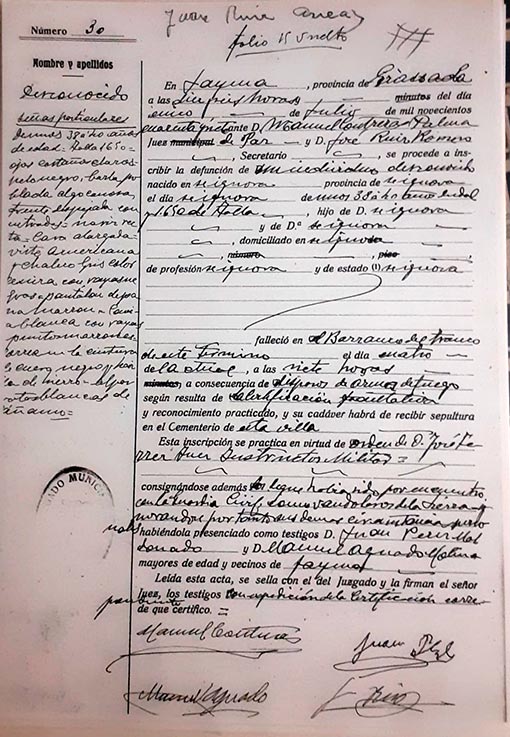 Juan Ruiz
folio 15 vuelto
Número 30
Nombre y apellidos
Desconocido
señas particulares
de unos 38 a 40 años
de edad: talla 1650
ojos castaño claros
pelo negro, barba po
blada algo canosa
frente despejada con
entradas = nariz rec
ta = cara alargada =
viste Americana
y chaleco gris color
con rayas ne
gras = pantalon de pa
na marron = Cami
sa blanca con rayas
punto marrones
correa en la cintura
de cuero negro
lla de hierro = alpar
gatas blancas de
cáñamo =
En Jayena, provincia de Granada
a las diez y seis horas minutos del día
cinco de Julio de mil novecientos
cuarenta y siete ante D. Manuel Contreras Palma
Juez municipal de Paz y D. José Ruiz Romero
, Secretario, se procede a ins-
cribir la defunción de un individuo desconocido
nacido en se ignora provincia se ignora
el día se ignora de unos 38 a 40 años de edad
y 1650 de talla, hijo de D. se ignora
y de D.ª se ignora
, domiciliado en se ignora
, número , piso
de profesión se ignora y de estado (1) se ignora
falleció en el Barranco del
de este termino el día cuatro
del actual, a las siete horas
minutos, a consecuencia de disparos de arma de fuego
según resulta de certificación facultativa
y reconocimiento practicado, y su cadáver habrá de recibir sepultura
en el Cementerio de esta villa
Esta inscripción se practica en virtud de orden de D. José Fe
rrer Juez Instructor Militar =
consignándose además que ha sido por encuentro
con la Guardia Civil como de la sierra ig
norandose por tanto sus demas circunstancias perso
nales habiéndola presenciado como testigos D. Juan Perez Mal
donado y D. Manuel Aguado Molina
mayores de edad y vecinos de Jayena
Leída esta acta, se sella con el del Juzgado y la firman el señor
Juez, los testigos con expedición de la certificación corres
pondiente de que certifico. =
JUZGADO MUNICI
Manuel Contreras
Juan
Manuel Aguado
J. Ruiz